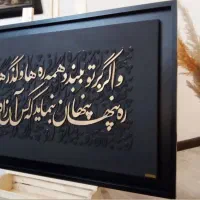 و اگر بر تو ببندد همه ره ها و گذرها
ره پنهان بنماید که کس آن راه